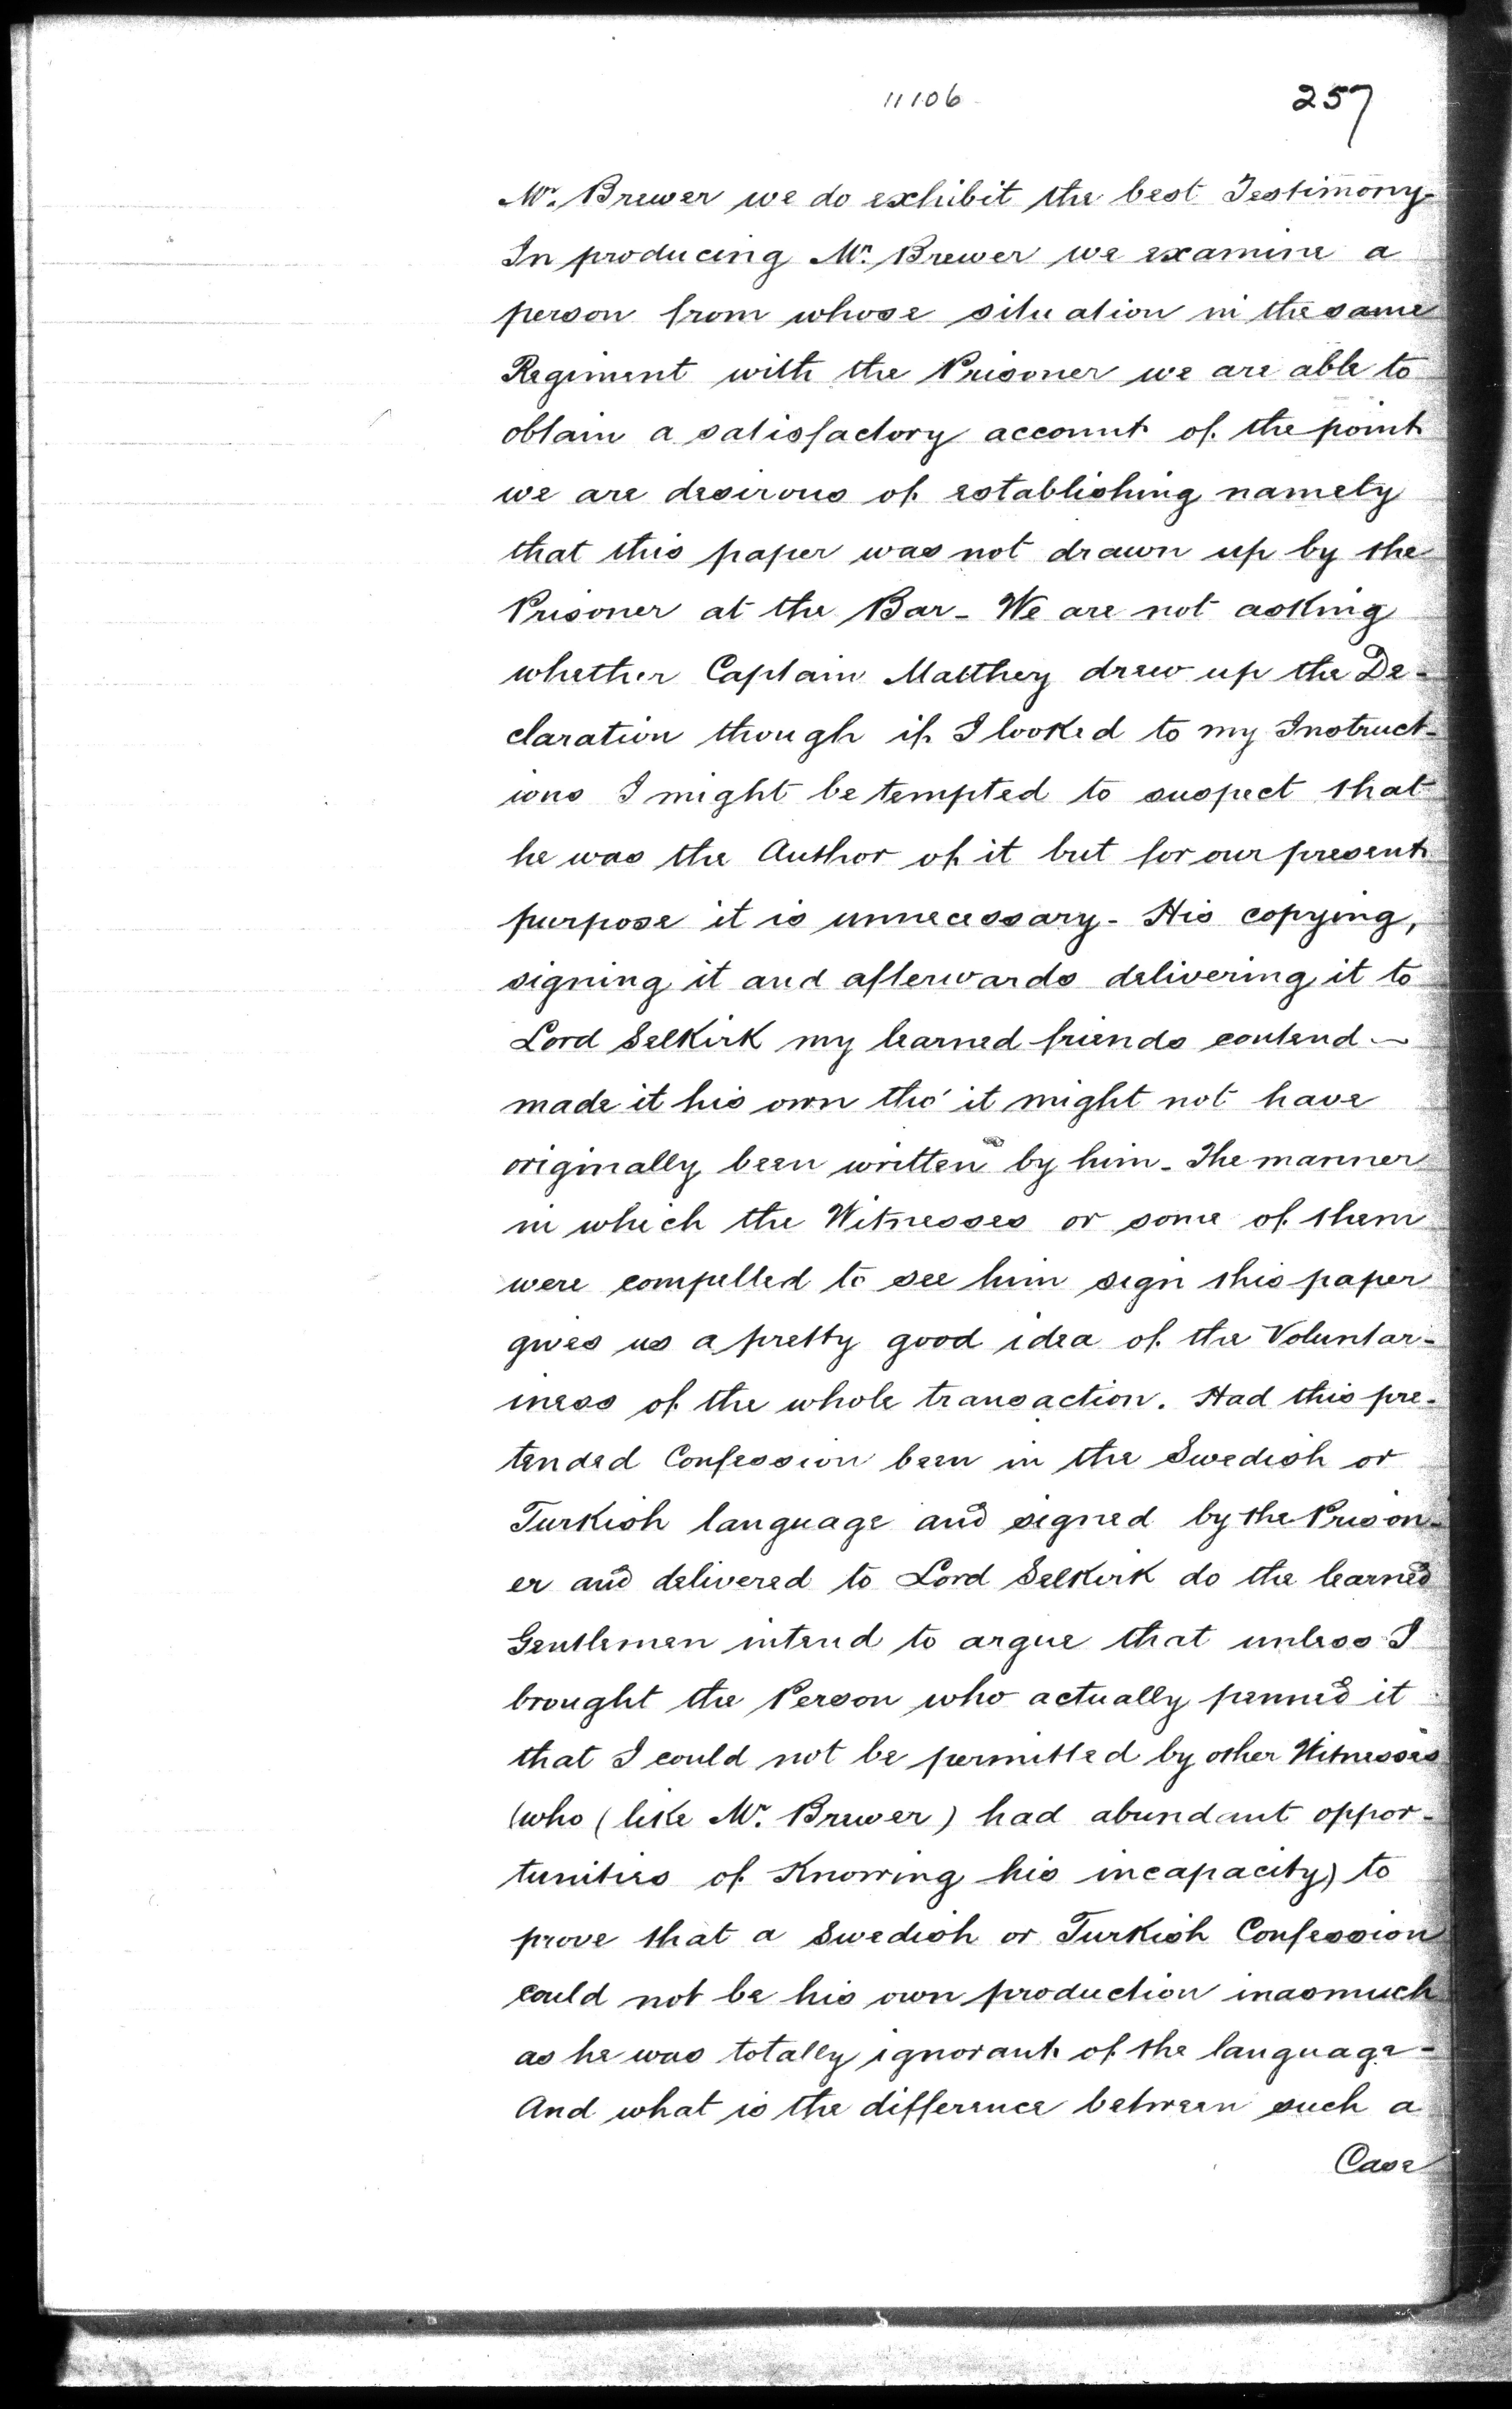 11106
257
Mr. Brewer we do exhibit the best Testimony-
In producing Mr. Brewer we examine a
person from whose situation in the same
Regiment with the Prisoner we are able to
obtain a satisfactory account of the point
we are desirous of establishing namely
that this paper was not drawn up by the
Prisoner at the Bar - We are not asking
whether Captain Matthey drew up the De-
claration though if I looked to my Instruct-
ions I might be tempted to suspect that
he was the Author of it but for our present
purpose it is unnecessary - His copying,
signing it and afterwards delivering it to
Lord Selkirk my learned friends contend -
made it his own tho' it might not have
originally been written by him - The manner
in which the Witnesses or some of them
were compelled to see him sign this paper
gives us a pretty good idea of the Voluntar-
iness of the whole transaction. Had this pre-
tended Confession been in the Swedish or
Turkish language and signed by the Prison-
er and delivered to Lord Selkirk do the learned
Gentlemen intend to argue that unless I
brought the Person who actually penned it
that I could not be permitted by other Witnesses
(who (like Mr. Brewer) had abundant oppor-
tunities of Knowing his incapacity) to
prove that a Swedish or Turkish Confession
could not be his own production inasmuch
as he was totally ignorant of the language -
And what is the difference between such a
Case